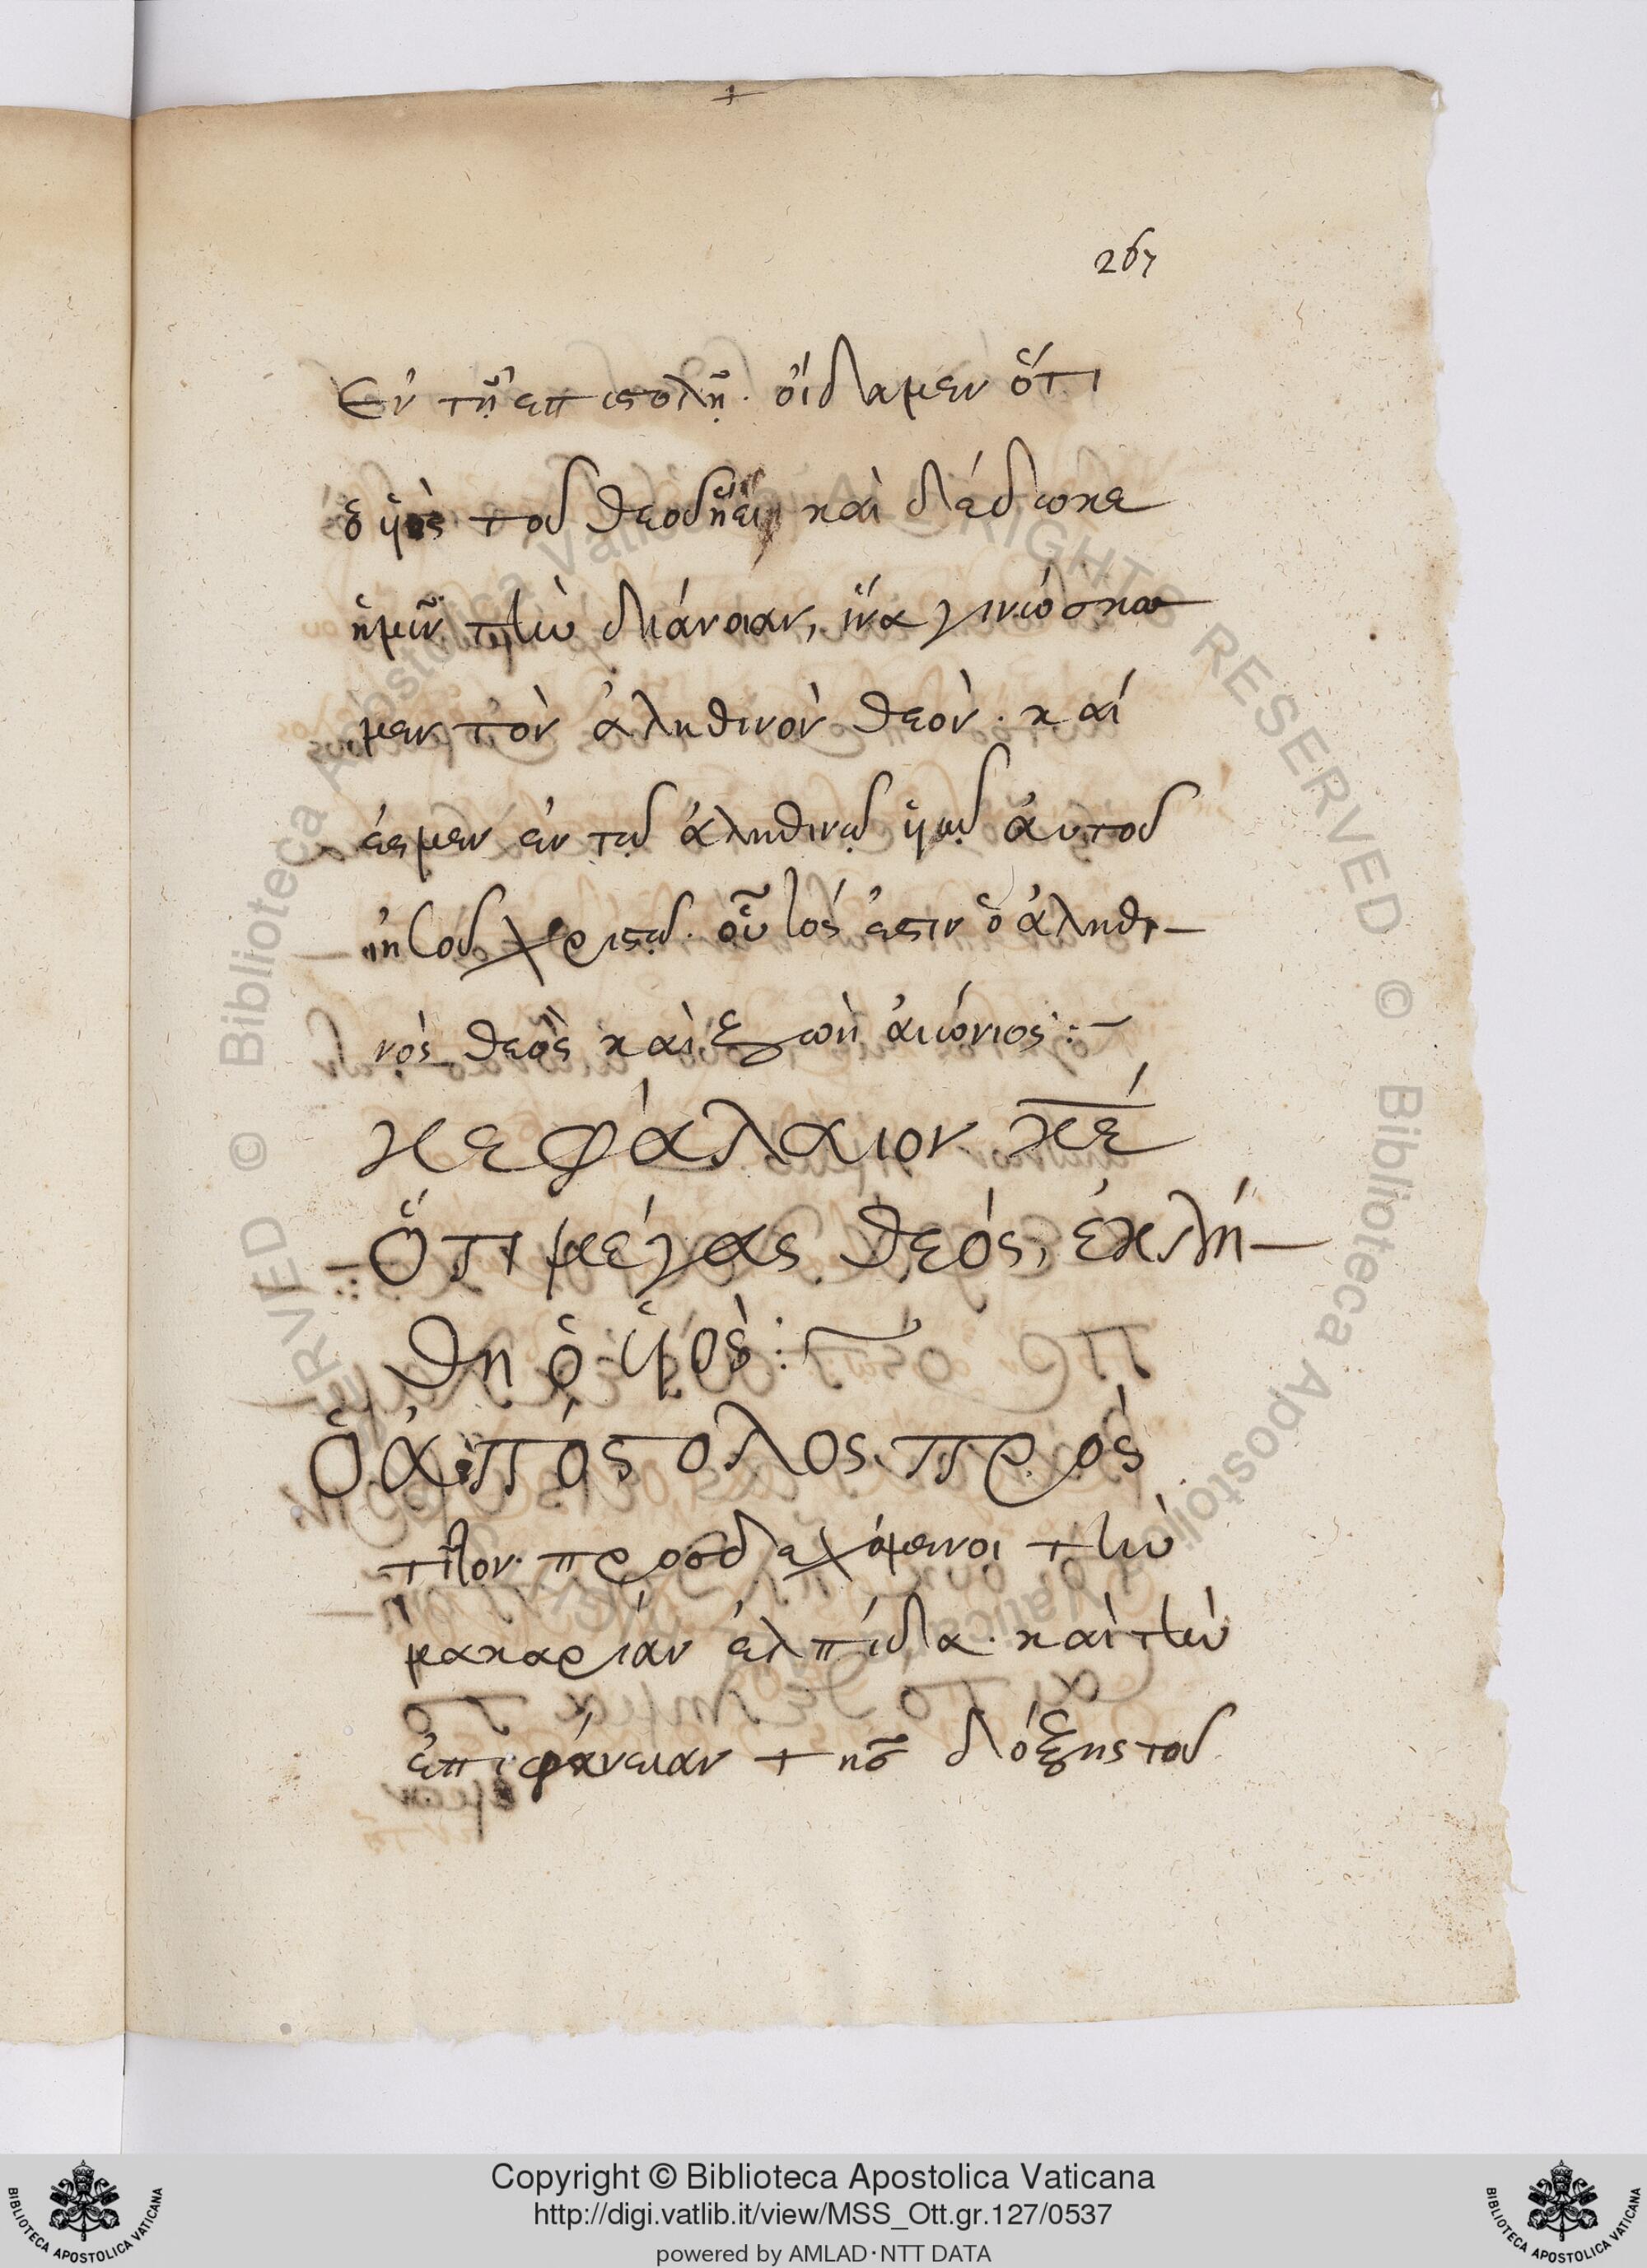 267
Ἐν τῆ ἐπιστολῆ. οἴδαμεν ὅτι
ὁ ὑιὸς τοῦ θεοῦ ἥκει καὶ δέδωκε
ἡμῖν τὴν διάνοιαν, ἵνα γινώσκω
μεν τὸν ἀληθινὸν θεὸν. καί
ἐσμεν ἐν τῶ ἀληθινῶ ὑιῶ ἀυτοῦ
ἰησοῦ χριστῶ. οὗτός ἐστιν ὁ ἀληθι-
νὸς θεὸς καὶ ζωὴ ἀιώνιος:-
κεφάλαιον κε
Ὅτι μέγας θεός, ἐκλή-
θη ὁ ὑιὸς:~
Ὁ ἀπόστολος πρὸς
τῖτον. προσδεχόμενοι τὴν
μακαρίαν ἐλπίδα. καὶ τὴν
ἐπιφάνειαν τῆς δόξης τοῦ
© Biblioteca Apostolica Vaticana ALL RIGHTS RESERVED © Biblioteca Apostolica Vaticana
BIBLIOTECA APOSTOLICA VATICANA
Copyright © Biblioteca Apostolica Vaticana
http://digi.vatlib.it/view/MSS_Ott.gr.127/0537
powered by AMLAD·NTT DATA
BIBLIOTECA APOSTOLICA VATICANA